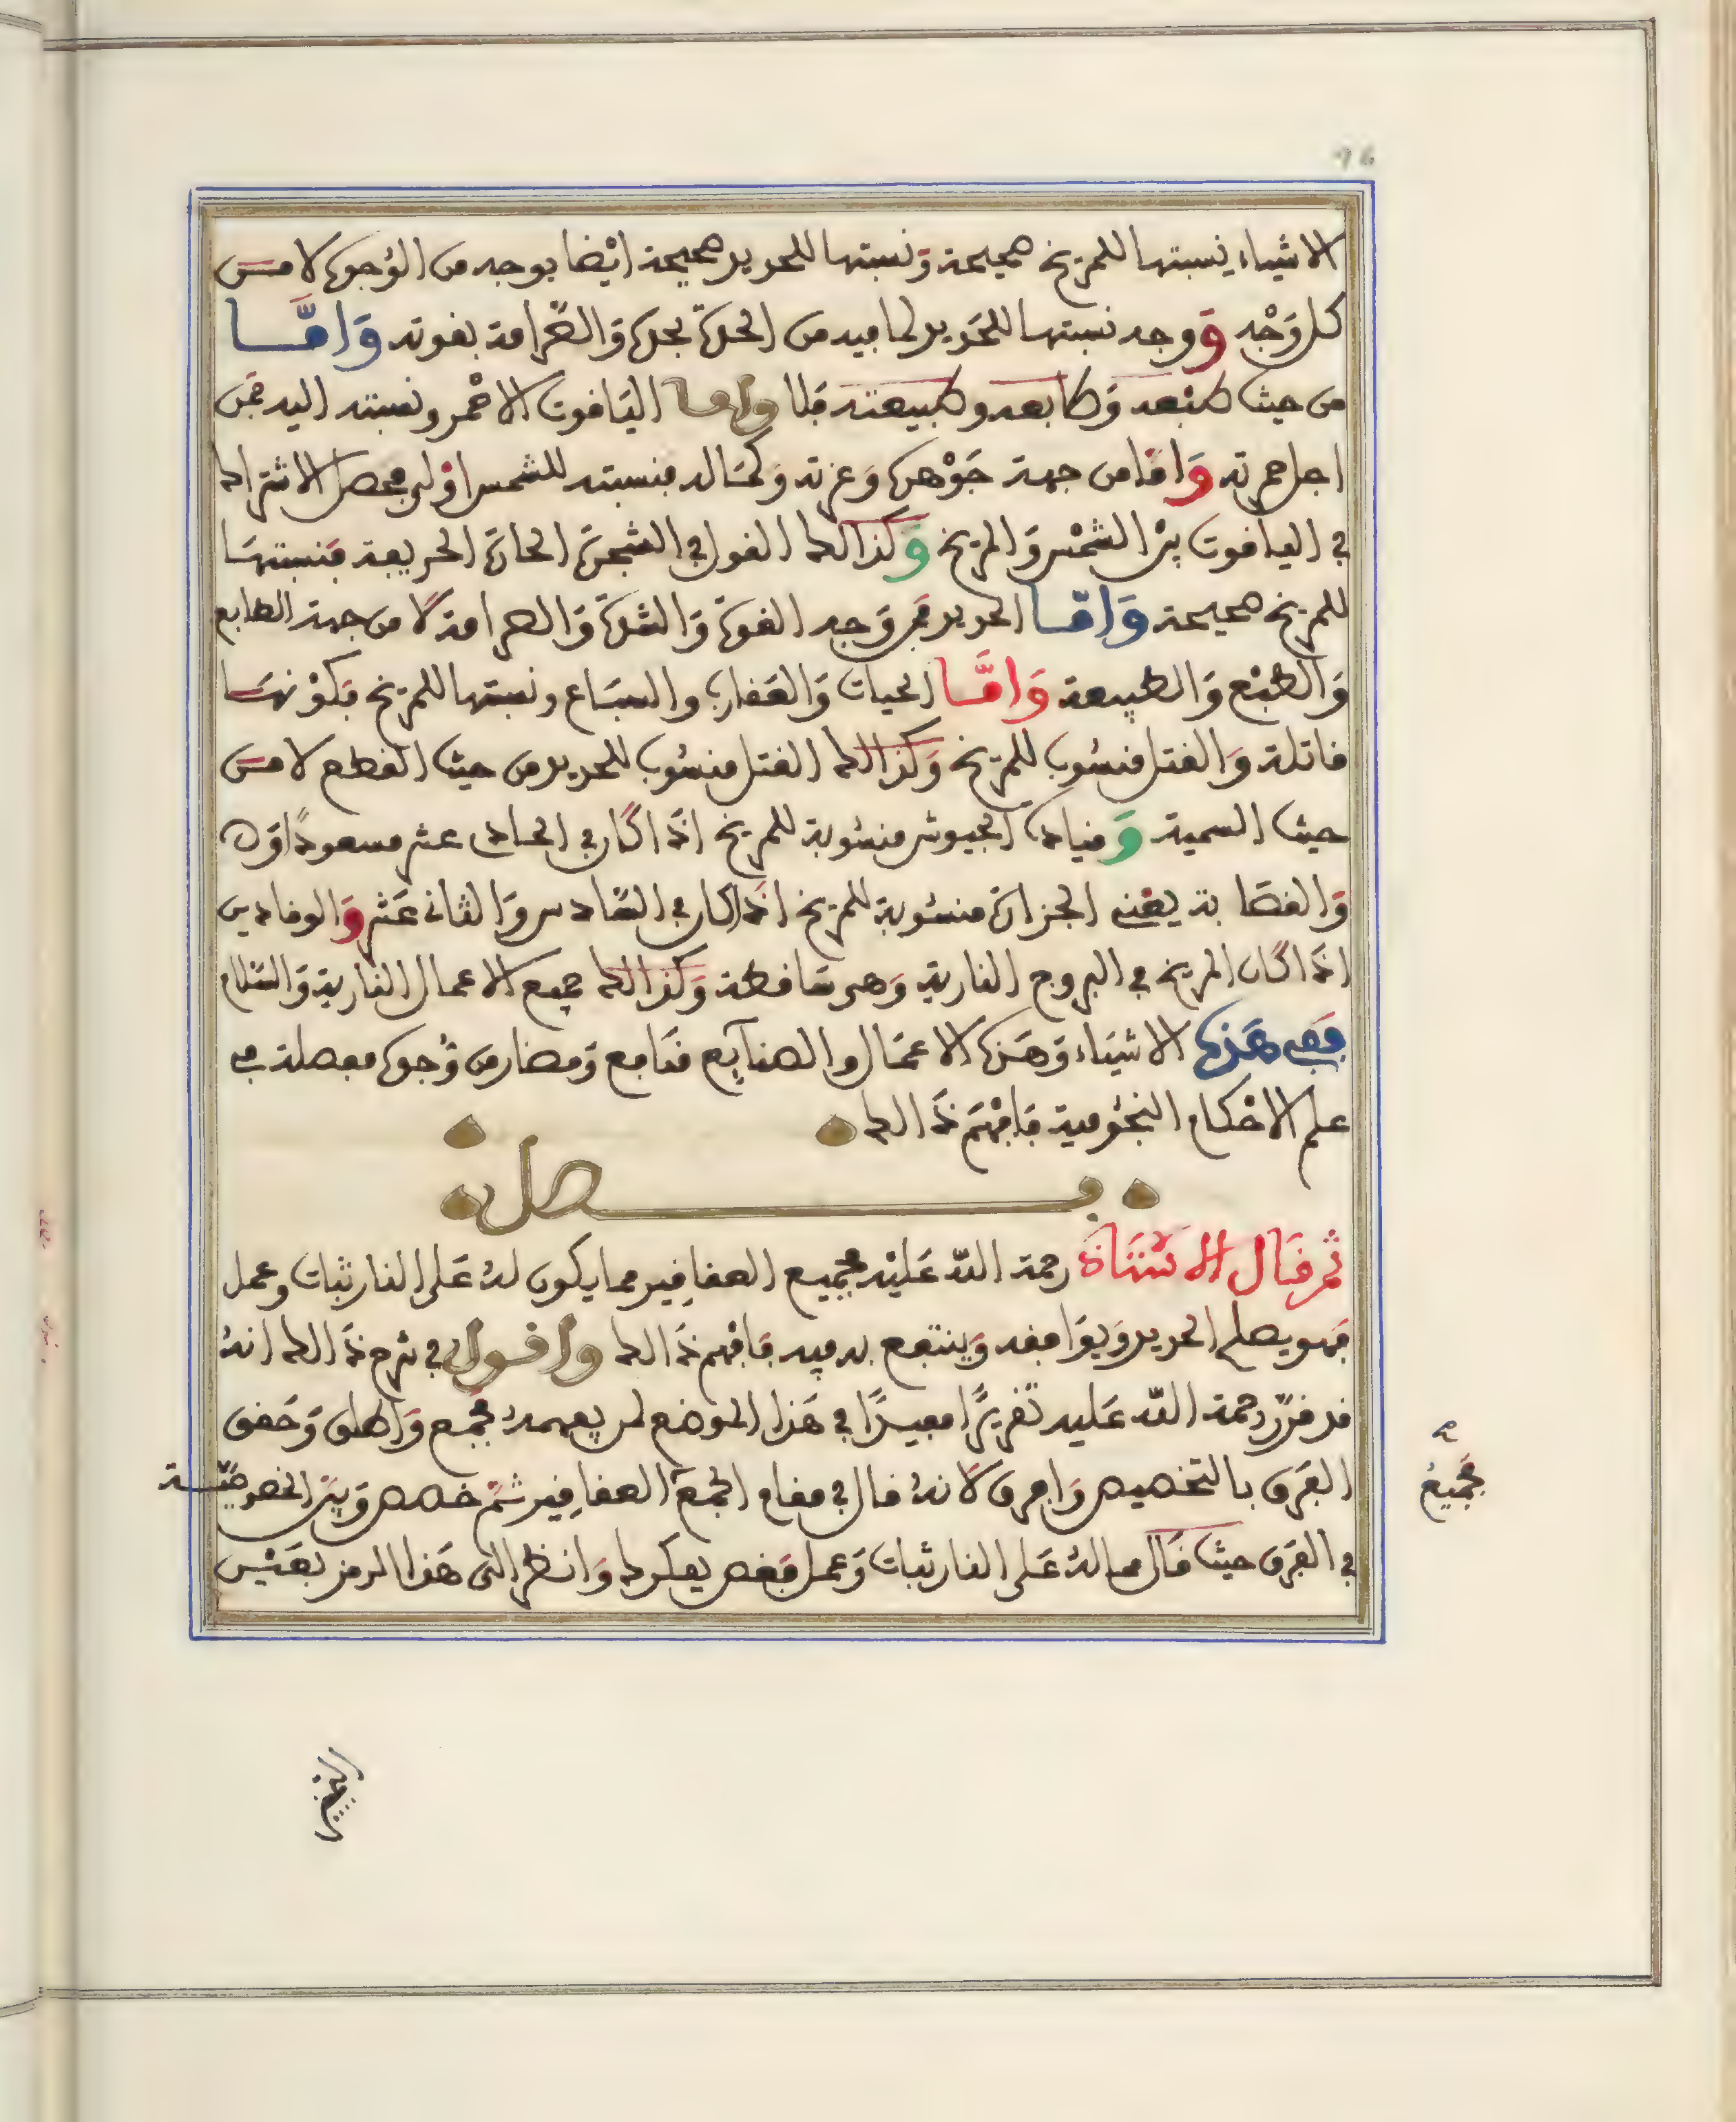 الاشياء نسبتها للمريخ صحيحة وَنسبتها للحديد صحيحة ايْضا بوجه من الوُجوه لا مـن
كل وَجْه وَوجه نسبتها للحَديد لما فيه من الحدّة بحده وَالصّرامة بقوته وَامَّـا
من حيث طبْعه وَطابعه وطبيعته فلا واما اليَاقوت الاحْمر ونسبته اليه فمن
اجل حمرته وَامّا من جهة جَوْهره وَعزته وَكمَاله فنسبته للشمس اوْلى فحصل الاشتراك
في الياقوت بيْن الشمْس وَالمريخ وَكذالك القول في الشجرَة الحارّة الحريفة فنسبتهَا
للمريخ صحيحة وَامّـا الحديد فمن وَجه القوة وَالشدة وَالصرامة لا من جهة الطابع
وَالطبْع وَالطبيعة وَامَّـا الحيات وَالعَقارب والسبَاع ونسبتها للمريخ فكوْنهـا
قاتلة وَالقتل منسُوب للمريخ وَكذالك القتل منسُوب للحديد من حيث القطع لا مـن
حيث السمية وَقياد الجيوش منسُوبة للمريخ اذا كان في الحادى عشر مسعودًا قوه
وَالقصّابة يعْني الجزارَة منسُوبة للمريخ اذا كان في السّادس وَالثانى عَشر وَالوقادين
اذا كان المريخ في البروج النارية وَهى سَاقطة وَكذالك جميع الاعمال النارية وَالسّلام
ففى هَذه الاشيَاء وَهَذه الاعمَال والصنايع منَافع وَمضار من وُجوه مفصلة في
علم الاحْكام النجُومية فافهَم ذَالك
فـــصل
ثم قَال الاسْتَاذ رحمة اللّه عَليْه فجميع العقاقِير مما يكون لهُ عَلى النار ثبات وعمل
فهو يصلح الحديد وَيوَافقه وَينتفع به فيه فافْهم ذَالك واقـول في شرح ذَالك انهُ
قد قرّر رحمة اللّه عَليه تقريرًا مفيدًا في هَذا الموْضع لمن يفهمهُ فجمع وَاطلق وَحَقق
الفَرق بالتخصيص وَافرق لانهُ قال في مقام الجمْع العقاقِير ثمّ خصص وَبيّن الخصوصيّـة
في الفَرق حيث قَال مما لهُ عَلى النار ثبات وَعمل فقص بفكرك وَانظر الى هَذا الرمز بعَيْـن
فجَميعُ